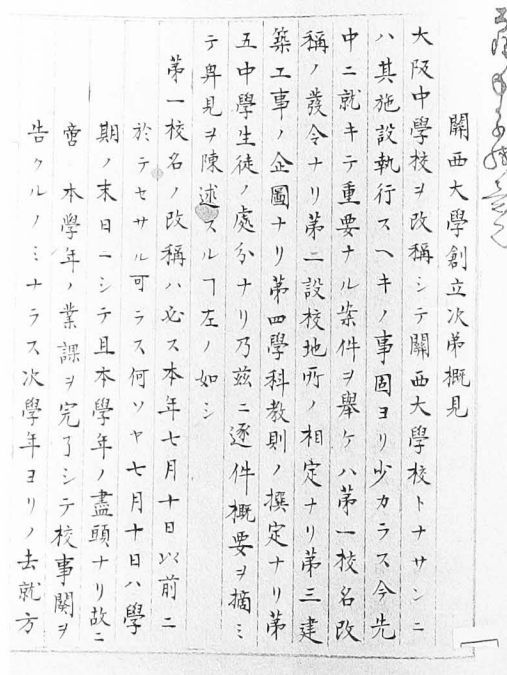 關西大學創立次弟概見
大阪中學校ヲ改稱シテ關西大學校トナサンニ
ハ其施設執行スヘキノ事固ヨリ少カラス今先
中ニ就キテ重要ナル案件ヲ舉ケハ第一校名改
稱ノ發令ナリ第二設校地所ノ相定ナリ第三建
築工事ノ企圖ナリ第四學科教則ノ撰定ナリ第
五中學生徒ノ處分ナリ乃茲ニ逐件概要ヲ摘ミ
テ卑見ヲ陳述スルヿ左ノ如シ
第一校名ノ改稱ハ必ス本年七月十日以前ニ
於テセサル可ラス何ソヤ七月十日ハ學
期ノ末日ニシテ且本學年ノ盡頭ナリ故ニ
啻ニ本學年ノ業課ヲ完了シテ校事關ヲ
告クルノミナラス次學年ヨリノ去就方